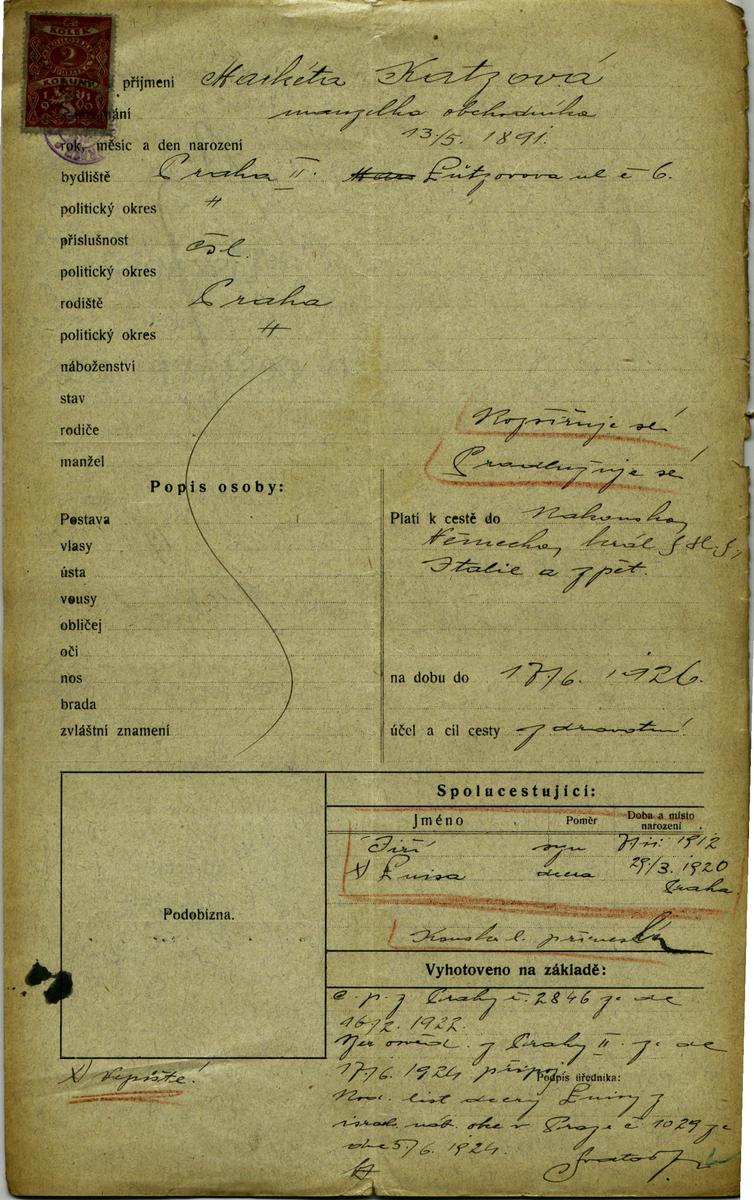 KOLEK
2
KORUNY
příjmení Markéta Katzová
manželka obchodníka
rok, měsíc a den narození 13/5. 1891.
bydliště Praha II. Lützovova ul č 6.
politický okres "
příslušnost čsl.
politický okres
rodiště Praha
politický okres "
náboženství
stav
rodiče
manžel
Rozšiřuje se
Prodlužuje se
Popis osoby:
Postava
vlasy
ústa
vousy
obličej
oči
nos
brada
zvláštní znamení
Platí k cestě do Rakouska,
Německa, král. S.H.S.,
Italie a zpět.
na dobu do 17/6. 1926.
účel a cíl cesty zdravotní
Spolucestující:
Jméno Poměr Doba a místo narození
Jiří syn 1912
X Luisa dcera 29/3. 1920
Praha.
Podobizna.
Vyhotoveno na základě:
c. p. z Prahy č. 2846 ze dne
16/2. 1922.
osvěd. z Prahy II. ze dne
17/6. 1924 připoj.
Podpis úředníka:
Rod. list dcery Luisy z
israel. náb. obce v Praze č 1029 ze
dne 5/6. 1924.
X Vepište!